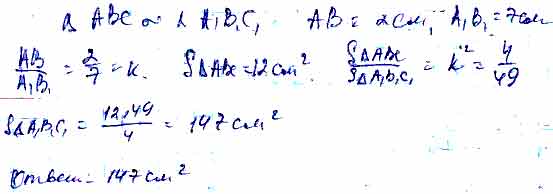 Δ ABC ∼ Δ A₁B₁C₁ AB = 2 см, A₁B₁ = 7 см
AB/A₁B₁ = 2/7 = k. SΔABC = 12 см². SΔABC/SΔA₁B₁C₁ = k² = 4/49
SΔA₁B₁C₁ = 12.49/4 = 147 см²
Ответ: 147 см²